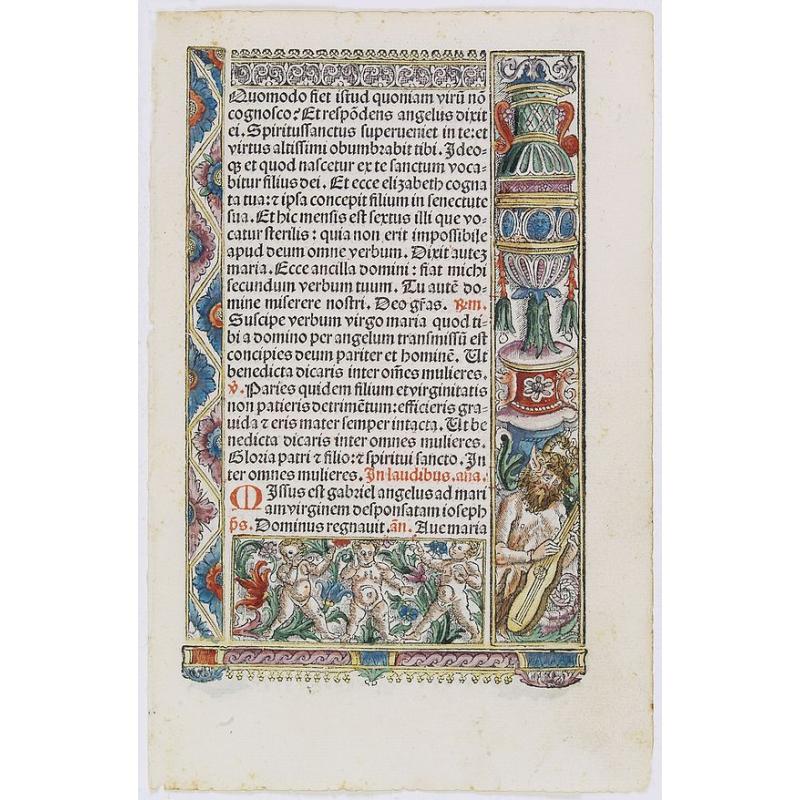 Quomodo fiet istud quoniam virũ nõ
cognosco? Et respõdens angelus dixit
ei. Spiritussanctus superueniet in te: et
virtus altissimi obumbrabit tibi. Ideo-
qʒ et quod nascetur ex te sanctum voca-
bitur filius dei. Et ecce elizabeth cogna
ta tua: ⁊ ipsa concepit filium in senectute
sua. Et hic mensis est sextus illi que vo-
catur sterilis: quia non erit impossibile
apud deum omne verbum. Dixit autez
maria. Ecce ancilla domini: fiat michi
secundum verbum tuum. Tu autẽ do-
mine miserere nostri. Deo gr̃as. ℞m.
Suscipe verbum virgo maria quod ti-
bi a domino per angelum transmissũ est
concipies deum pariter et hominẽ. Ut
benedicta dicaris inter om̃es mulieres.
℣. Paries quidem filium et virginitatis
non patieris detrimẽtum: efficieris gra-
uida ⁊ eris mater semper intacta. Ut be
nedicta dicaris inter omnes mulieres.
Gloria patri ⁊ filio: ⁊ spiritui sancto. In
ter omnes mulieres. In laudibus. aña.
Missus est gabriel angelus ad mari
am virginem desponsatam ioseph
p̃s. Dominus regnauit. añ. Aue maria